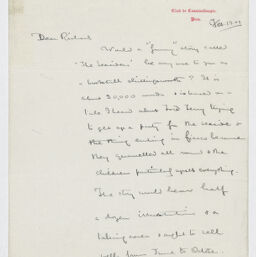 Club de Constantinople,
Pera.
Feb. 19.09
Dear Richards
Would a "funny" story called
"The Seaside" be any use to you as
a bookstall shillingsworth? It is
about 30,000 words & is based on a
tale I heard about Lord
to get up a party for the seaside &
the thing ending in fiasco because
they quarrelled all round & the
children practically upset everything.
The story would bear half
a dozen illustrations & a
taking cover & ought to sell
well from June to October.